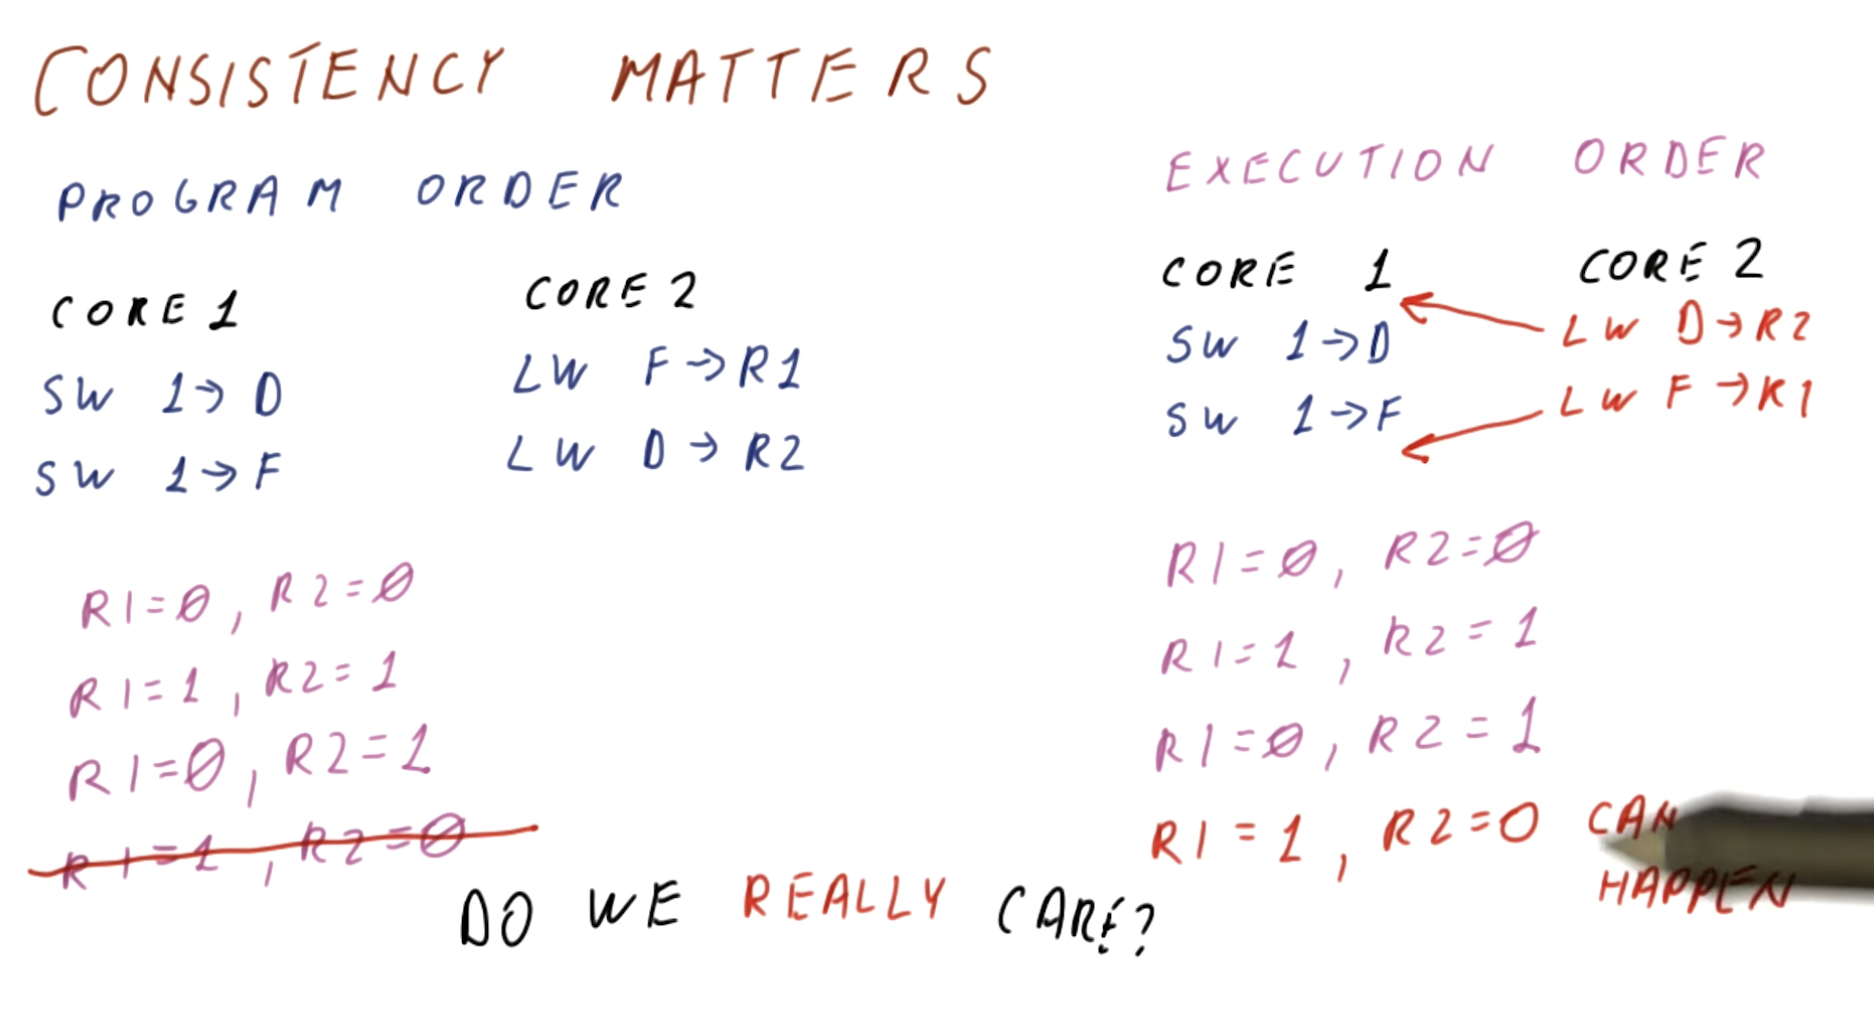 CONSISTENCY MATTERS
PROGRAM ORDER
CORE 1
SW 1→D
SW 1→F
CORE 2
LW F→R1
LW D→R2
R1=0, R2=0
R1=1, R2=1
R1=0, R2=1
R1=1, R2=0
EXECUTION ORDER
CORE 1
SW 1→D
SW 1→F
CORE 2
LW D→R2
LW F→R1
R1=0, R2=0
R1=1, R2=1
R1=0, R2=1
R1=1, R2=0 CAN
HAPPEN
DO WE REALLY CARE?